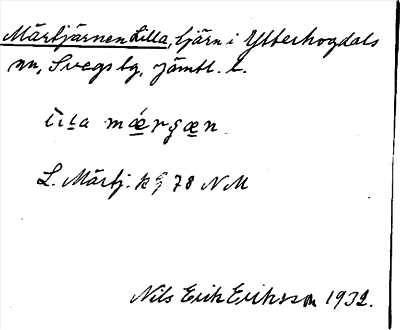 Märtjärnen Lilla, tjärn i Ytterhogdals
sn, Svegs tg, Jämtl. l.
lɩla mǽrʂæn
L. Märtj. k G 78 NM
Nils Erik Eriksson 1932.